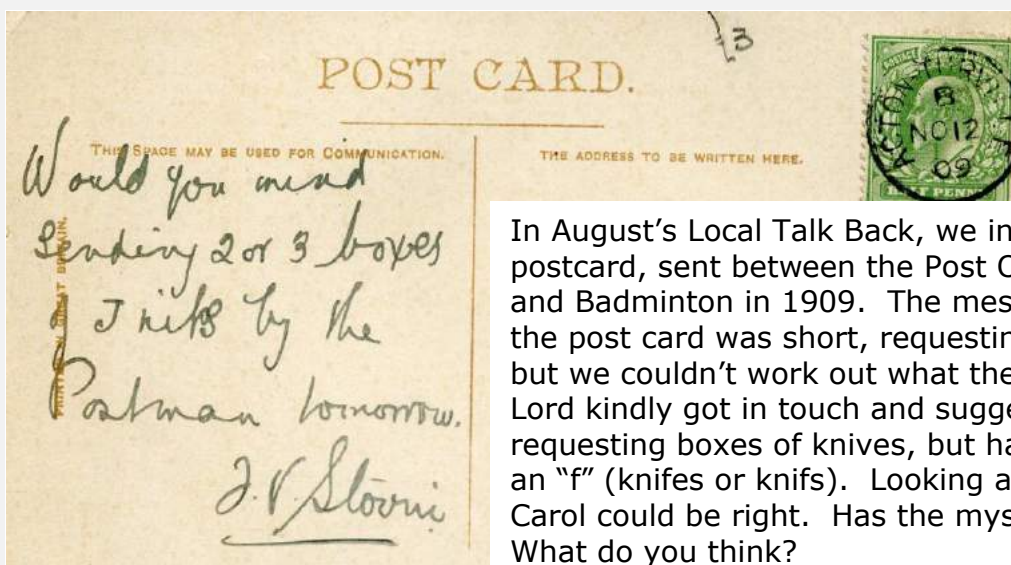 3
POST CARD.
THIS SPACE MAY BE USED FOR COMMUNICATION.
THE ADDRESS TO BE WRITTEN HERE.
POSTAGE
ACTON TURVILLE
B
NO 12
09
HALF PENNY
PRINTED IN GREAT BRITAIN.
Would you mind
Sending 2 or 3 boxes
by the
Postman tomorrow.
In August’s Local Talk Back, we in
postcard, sent between the Post O
and Badminton in 1909. The mes
the post card was short, requestin
but we couldn’t work out what the
Lord kindly got in touch and sugge
requesting boxes of knives, but ha
an “f” (knifes or knifs). Looking a
Carol could be right. Has the mys
What do you think?